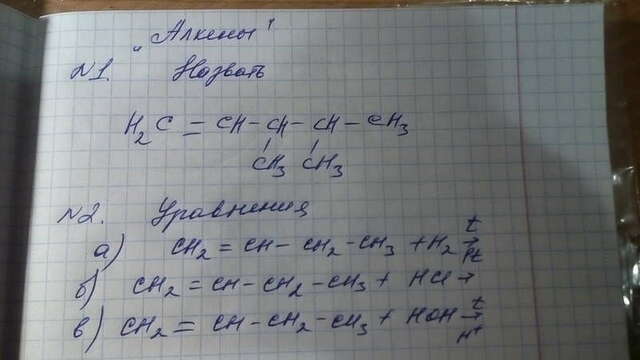 "Алкены"
№1. Назвать
H₂C = CH – CH – CH – CH₃
CH₃ CH₃
№2. Уравнения
t
а) CH₂ = CH – CH₂ – CH₃ + H₂ →
Pt
б) CH₂ = CH – CH₂ – CH₃ + HCl →
t
в) CH₂ = CH – CH₂ – CH₃ + HOH →
H⁺